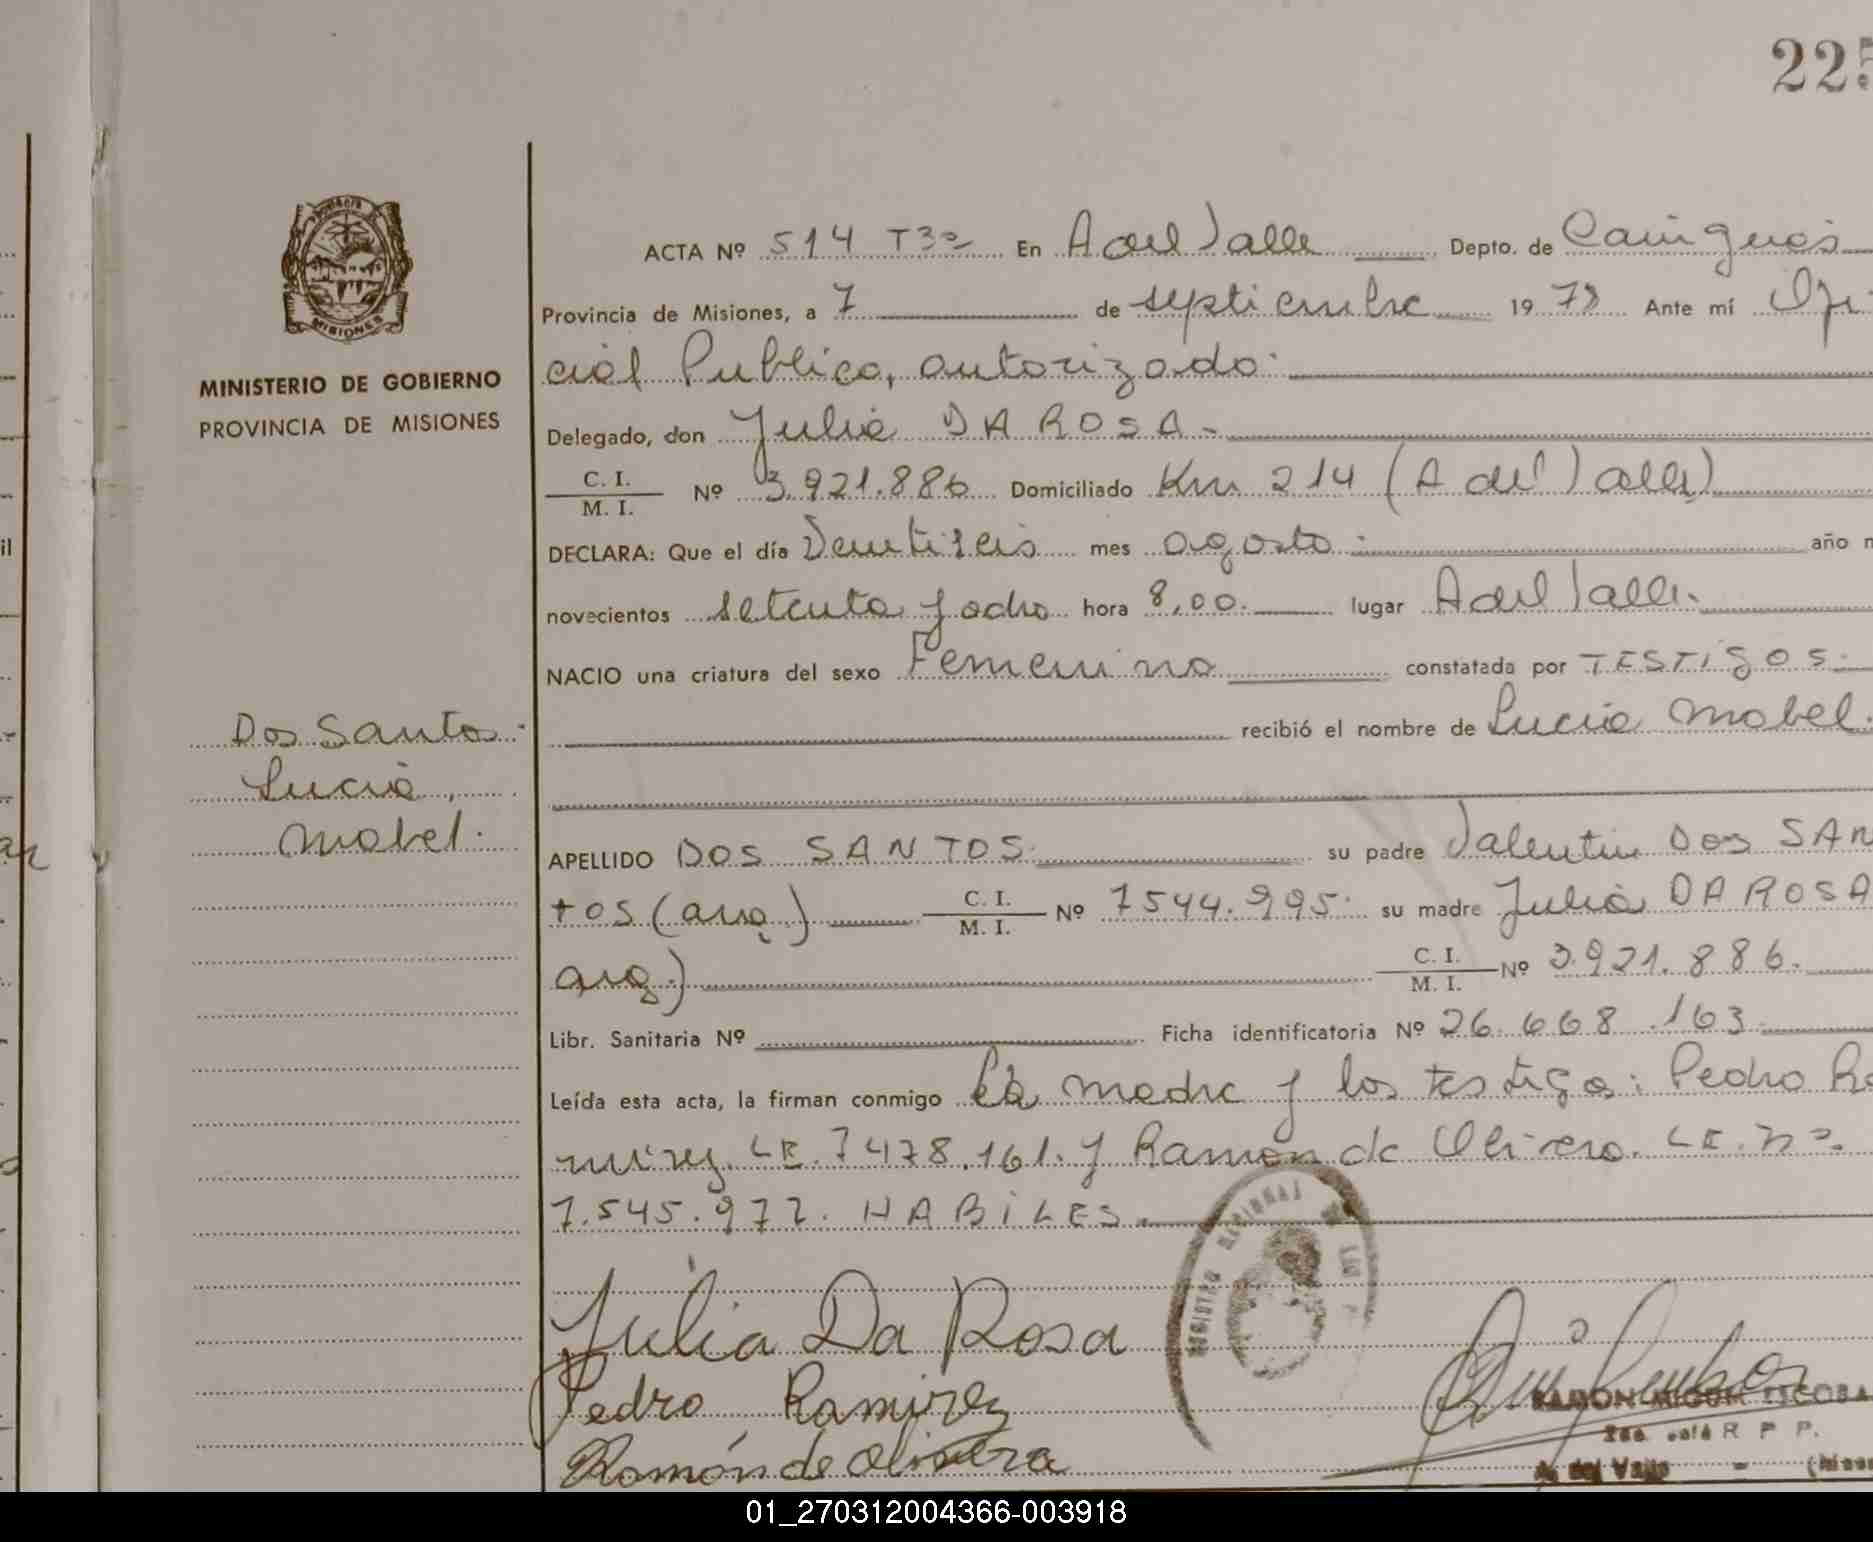 225
ACTA Nº 514 T3º En A del Valle Depto. de Cainguas
Provincia de Misiones, a 7 de septiembre 1978 Ante mí Ofi-
cial Publico, autorizado.
MINISTERIO DE GOBIERNO
PROVINCIA DE MISIONES
Delegado, don Julia DA ROSA.
C. I.
M. I.
Nº 3.921.886 Domiciliado Km 214 (A del Valle)
DECLARA: Que el día Veintiseis mes agosto año
novecientos setenta y ocho hora 8,00. lugar A del Valle.
NACIO una criatura del sexo Femenino constatada por TESTIGOS.
recibió el nombre de Lucia Mabel.
Dos Santos
Lucia
Mabel.
APELLIDO DOS SANTOS su padre Valentin DOS SAN
TOS (arg.) C. I. M. I. Nº 7544.995. su madre Julia DA ROSA
arg.) C. I. M. I. Nº 3.921.886.
Libr. Sanitaria Nº Ficha identificatoria Nº 26.668.163
Leída esta acta, la firman conmigo la madre y los testigos: Pedro Ra
mirez. LE. 7478.161. y Ramon de Olivera. LE. nº
7.545.977. HABILES.
REGISTRO PROVINCIAL DE LAS
Julia Da Rosa
Pedro Ramirez
Ramón de Olivera
RAMON MIGUEL ESCOBA
R P P.
A. del Valle
MISIONES
il
01_270312004366-003918